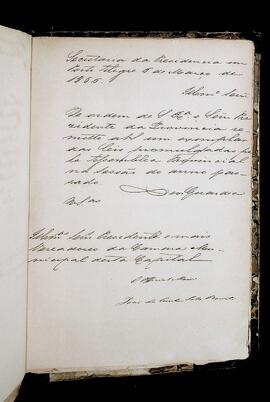 Secretaria da Presidencia em
Porto Alegre 5 de Março de
1855.
Illmos Senres
De ordem de S. Exa o Senr Pre-
zidente da Provincia re-
metto a Vas um exemplar
das Leis promulgadas pe-
la Assembléa Provincial
na Sessão do anno pas-
sado
Deos Guarde
a Vas
Illmos Senres Presidente e mais
Vereadores da Camara Mu-
nicipal desta Capital
João da